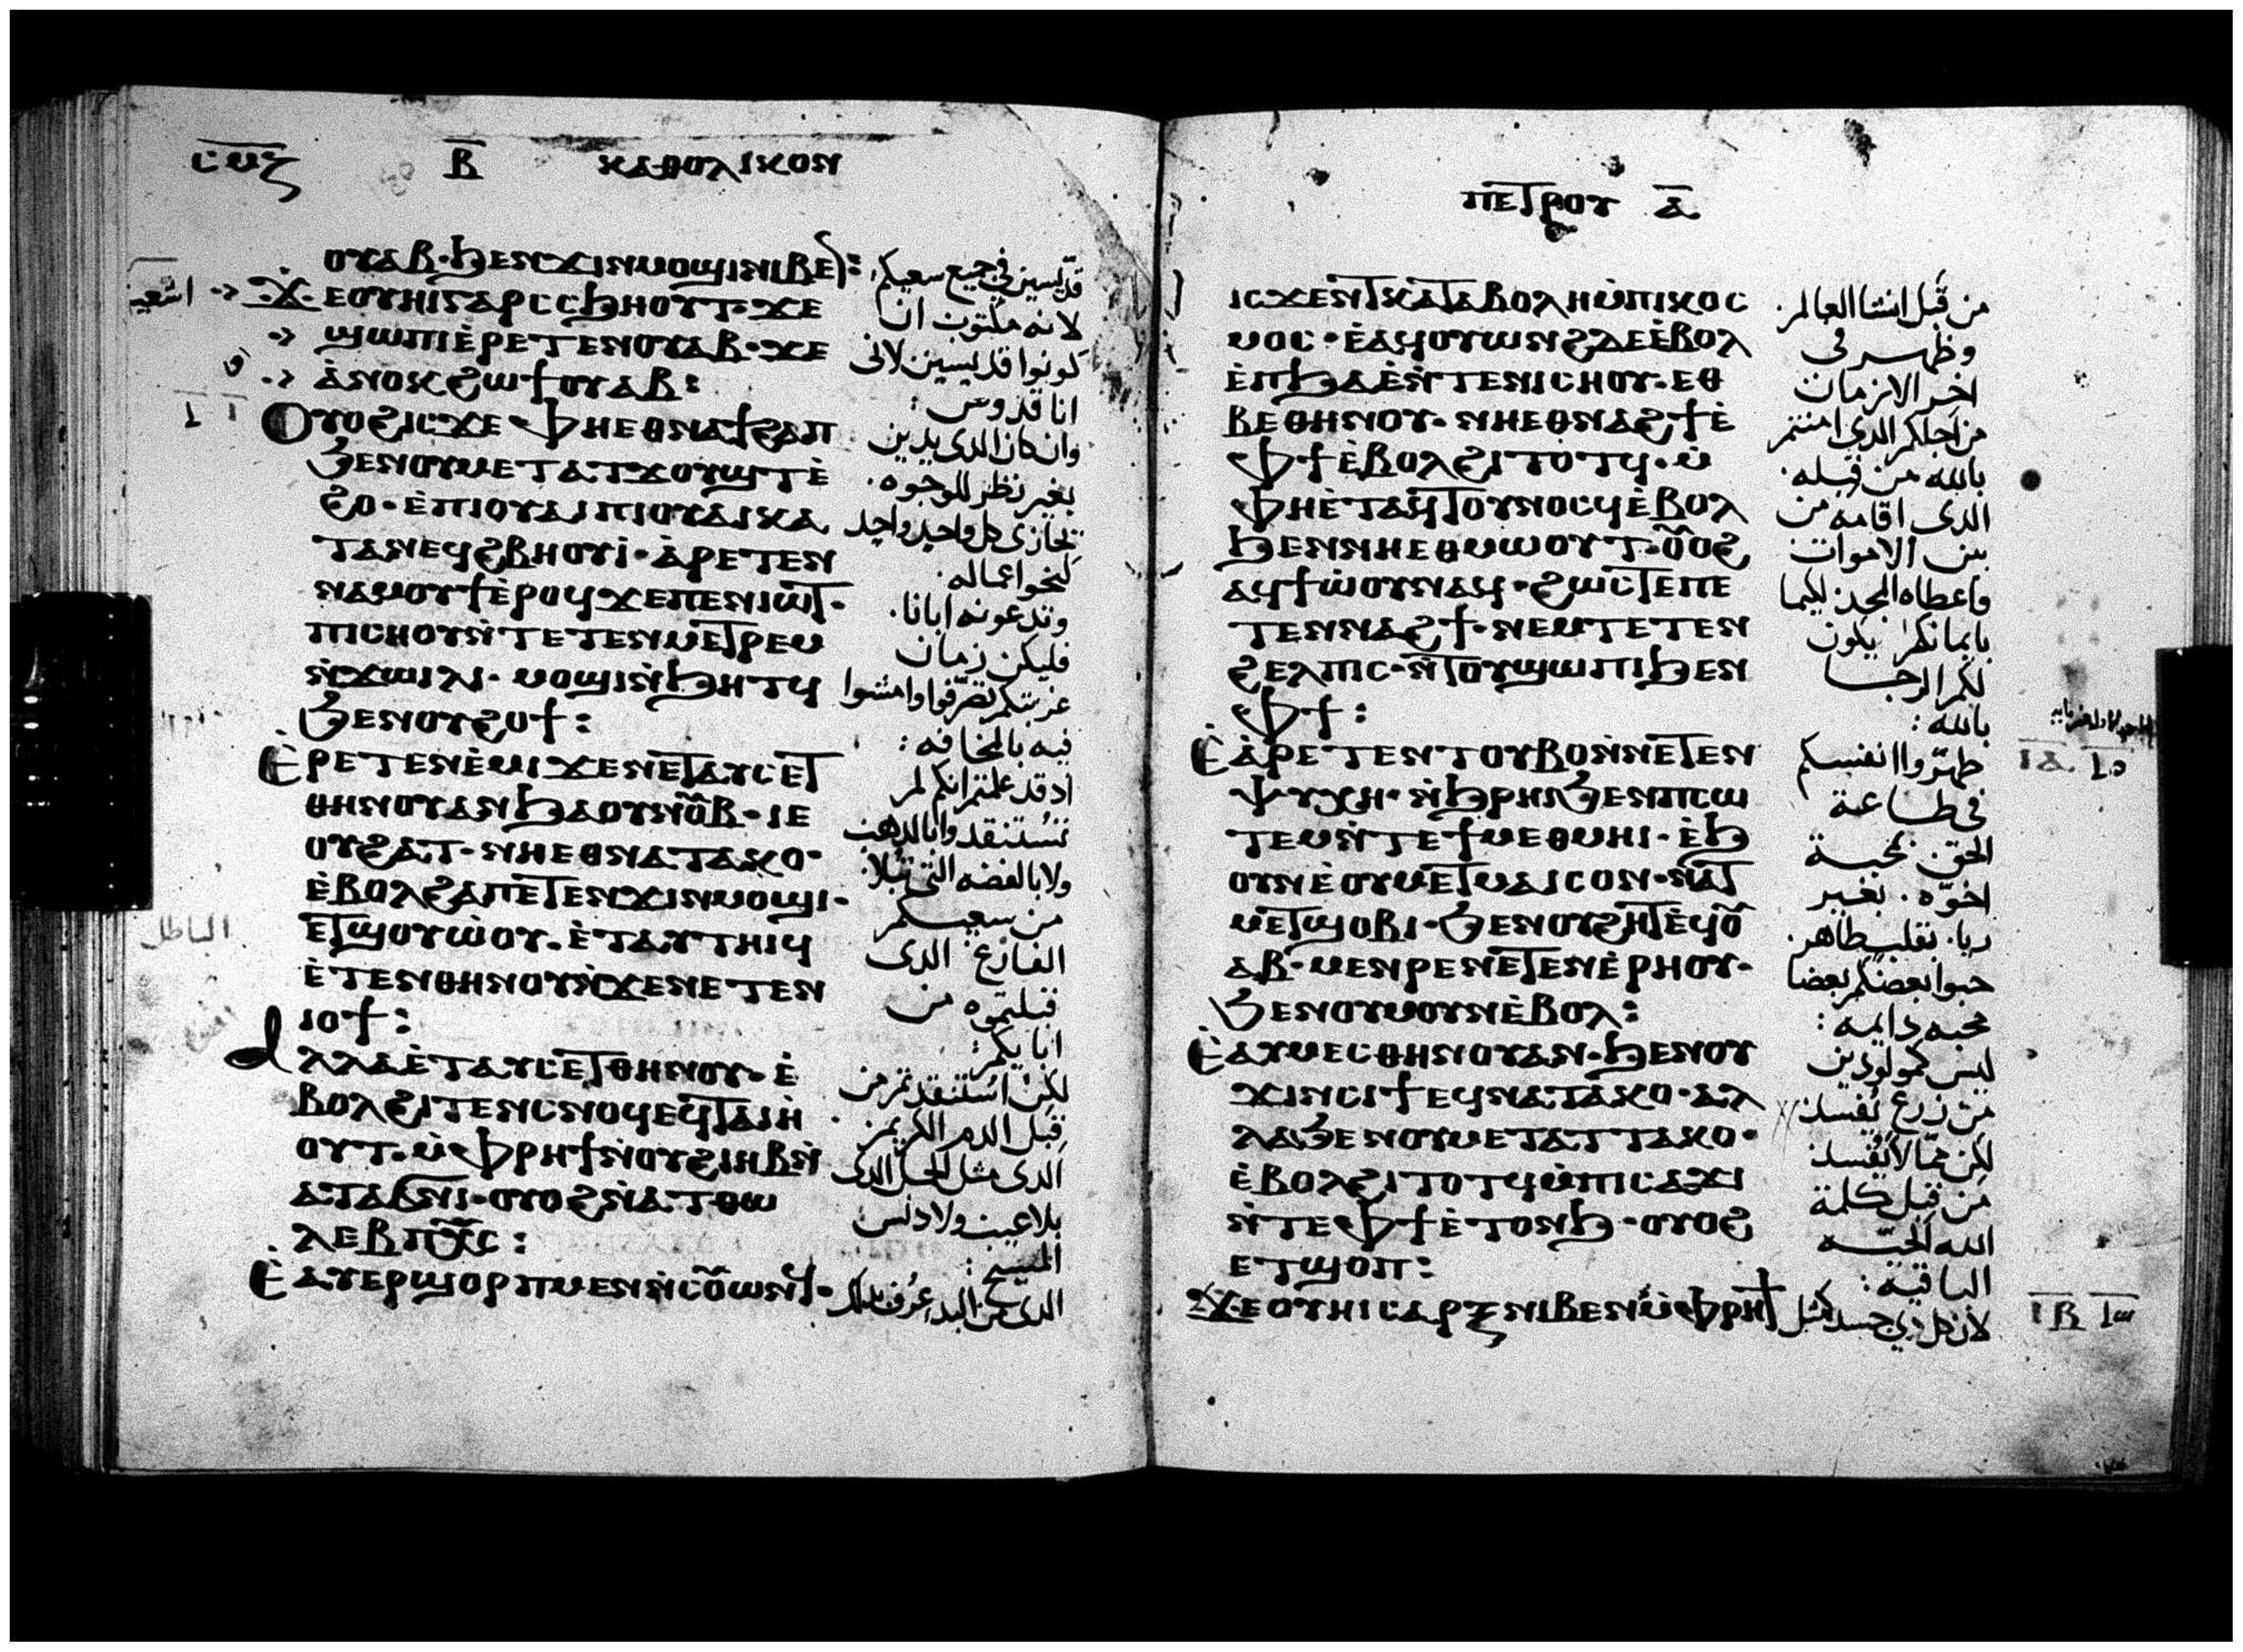 Ⲃ̅ ⲕⲁⲑⲟⲗⲓⲕⲟⲛ
ⲟⲩⲁⲃ·ϧⲉⲛϫⲓⲛⲙⲟϣⲓⲛⲓⲃⲉⲛ:
ϫⲉⲟⲩⲏⲓⲅⲁⲣⲥⲥϧⲏⲟⲩⲧ·ϫⲉ
ϣⲱⲡⲓⲉ̀ⲣⲉⲧⲉⲛⲟⲩⲁⲃ·ϫⲉ
ⲁ̀ⲛⲟⲕϩⲱϯⲟⲩⲁⲃ:
ⲟⲩⲟϩⲓⲥϫⲉⲫⲏⲉⲑⲛⲁϯϩⲁⲡ
ϧⲉⲛⲟⲩⲙⲉⲧⲁⲧϫⲟⲩϣⲧⲉ̀
ϩⲟ·ⲉ̀ⲡⲓⲟⲩⲁⲓⲡⲓⲟⲩⲁⲓⲕⲁ
ⲧⲁⲛⲉϥϩⲃⲏⲟⲩⲓ̀·ⲁ̀ⲣⲉⲧⲉⲛ
ⲛⲁⲙⲟⲩϯⲉ̀ⲣⲟϥϫⲉⲡⲉⲛⲓⲱⲧ·
ⲡⲓⲥⲏⲟⲩⲛ̀ⲧⲉⲧⲉⲛⲙⲉⲧⲣⲉⲙ
ⲛ̀ϫⲱⲓⲗⲓ·ⲙⲟϣⲓⲛ̀ϧⲏⲧϥ
ϧⲉⲛⲟⲩϩⲟϯ:
ⲉ̀ⲣⲉⲧⲉⲛⲉ̀ⲙⲓϫⲉⲛⲉⲧⲁⲩⲥⲉⲧ
ⲑⲏⲛⲟⲩⲁⲛϧⲁⲟⲩⲛⲟ̅ⲃ̅·ⲓⲉ
ⲟⲩϩⲁⲧ·ⲛⲏⲉⲑⲛⲁⲧⲁⲕⲟ·
ⲉ̀ⲃⲟⲗϩⲁⲡⲉⲧⲉⲛϫⲓⲛⲙⲟϣⲓ·
ⲉⲧϣⲟⲩⲱ̀ⲟⲩ·ⲉ̀ⲧⲁⲩⲧⲏⲓϥ
ⲉ̀ⲧⲉⲛⲑⲏⲛⲟⲩⲛ̀ϫⲉⲛⲉⲧⲉⲛ
ⲓⲟϯ:
ⲁⲗⲗⲁⲉ̀ⲧⲁⲩⲥⲉⲧⲑⲏⲛⲟⲩ·ⲉ̀
ⲃⲟⲗϩⲓⲧⲉⲛⲥⲛⲟϥⲉϥⲧⲁⲓⲏ̀
ⲟⲩⲧ·ⲙ̀ⲫⲣⲏϯⲛ̀ⲟⲩϩⲓⲏⲃⲛ̀
ⲁⲧⲁϭⲛⲓ·ⲟⲩⲟϩⲛ̀ⲁⲧⲑⲱ
ⲗⲉⲃⲡⲭ̅ⲥ̅:
ⲉ̀ⲁⲩⲉⲣϣⲟⲣⲡⲙⲉⲛⲛ̀ⲥⲟ̅ⲱⲛϥ·
قديسين في جميع سعيكم
لانه مكتوب ان
كونوا قديسين لاني
انا قدوس:
وان كان الدى يدين
بغير نظر للوجوه.
يجازى كل واحد واحد
كنحو اعماله.
وتدعونه ابانا.
فليكن زمان
غربتكم تصرفوا وامشوا
فيه بالمخافه:
اد قد علمتم انكم لم
تستنقدوا بالدهب
ولا بالفضه التى تبلا
من سعيكم
الفارغ الدى
قبلتموه من
ابايكم:
لكن استنقدتم من
قبل الدم الكريم.
الدى مثل الحمل الدى
بلا عيب ولا دنس
المسيح:
اشعيا
الباطل
ⲡⲉⲧⲣⲟⲩ ⲁ̅
ⲓⲥϫⲉⲛⲧⲕⲁⲧⲁⲃⲟⲗⲏⲙ̀ⲡⲓⲕⲟⲥ
ⲙⲟⲥ·ⲉ̀ⲁϥⲟⲩⲱⲛϩⲇⲉⲉ̀ⲃⲟⲗ
ⲉ̀ⲡϧⲁⲉ̀ⲛ̀ⲧⲉⲛⲓⲥⲏⲟⲩ·ⲉⲑ
ⲃⲉⲑⲏⲛⲟⲩ·ⲛⲏⲉⲑⲛⲁϩϯⲉ̀
ⲫϯⲉ̀ⲃⲟⲗϩⲓⲧⲟⲧϥ·ⲙ̀
ⲫⲏⲉ̀ⲧⲁϥⲧⲟⲩⲛⲟⲥϥⲉ̀ⲃⲟⲗ
ϧⲉⲛⲛⲏⲉⲑⲙⲱⲟⲩⲧ·ⲟ̅ⲟϩ
ⲁϥϯⲱ̀ⲟⲩⲛⲁϥ·ϩⲱⲥⲧⲉⲡⲉ
ⲧⲉⲛⲛⲁϩϯ·ⲛⲉⲙⲧⲉⲧⲉⲛ
ϩⲉⲗⲡⲓⲥ·ⲛ̀ⲧⲟⲩϣⲱⲡⲓϧⲉⲛ
ⲫϯ:
ⲉ̀ⲁ̀ⲣⲉⲧⲉⲛⲧⲟⲩⲃⲟⲛ̀ⲛⲉⲧⲉⲛ
ⲯⲩⲭⲏ·ⲛ̀ϧⲣⲏⲓϧⲉⲛⲡⲥⲱ
ⲧⲉⲙⲛ̀ⲧⲉϯⲙⲉⲑⲙⲏⲓ·ⲉ̀ϧ
ⲟⲩⲛⲉ̀ⲟⲩⲙⲉⲧⲙⲁⲓⲥⲟⲛ·ⲛ̀ⲁⲧ
ⲙⲉⲧϣⲟⲃⲓ·ϧⲉⲛⲟⲩϩⲏⲧⲉ̀ϥⲟ̅
ⲁⲃ·ⲙⲉⲛⲣⲉⲛⲉⲧⲉⲛⲉ̀ⲣⲏⲟⲩ·
ϧⲉⲛⲟⲩⲙⲟⲩⲛⲉ̀ⲃⲟⲗ:
ⲉ̀ⲁⲩⲙⲉⲥⲑⲏⲛⲟⲩⲁⲛ·ϧⲉⲛⲟⲩ
ϫⲓⲛⲥⲓϯⲉϥⲛⲁⲧⲁⲕⲟ·ⲁⲗ
ⲗⲁϧⲉⲛⲟⲩⲙⲉⲧⲁⲧⲧⲁⲕⲟ·
ⲉ̀ⲃⲟⲗϩⲓⲧⲟⲧϥⲙ̀ⲡⲓⲥⲁϫⲓ
ⲛ̀ⲧⲉⲫϯⲉ̀ⲧⲟⲛϧ·ⲟⲩⲟϩ
ⲉⲧϣⲟⲡ:
ϫⲉⲟⲩⲏⲓⲥⲁⲣⲝⲛⲓⲃⲉⲛⲙ̀ⲫⲣⲏϯ
من قبل انشا العالم.
وظهر فى
اخر الازمان
من اجلكم الدى امنتم
بالله من قبله.
الدى اقامه من
بين الاموات
واعطاه المجد ليكما
بايمانكم يكون
لكم الرجا
بالله:
طهروا انفسكم
فى طاعة
الحق بمحبة
اخوه. بغير
ريا. بقلب طاهر.
حبوا بعضكم بعضا
محبه دايمه:
ليس كمولودين
من زرع يفسد
لكن مما لا يفسد
من قبل كلمة
الله الحيه
الباقيه:
لان كل دي جسد كمثل
ⲓⲁ̅
ⲓⲃ̅